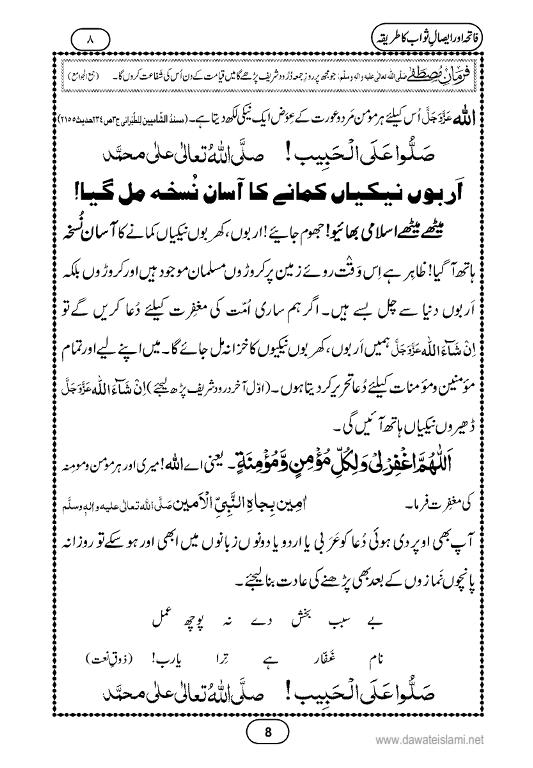 فاتحہ اور ایصالِ ثواب کا طریقہ
۸
فرمانِ مصطفٰے صلی اللہ تعالیٰ علیہ والہ وسلم: جو مجھ پر روزِ جمعہ دُرُود شریف پڑھے گا میں قیامت کے دن اُس کی شفاعت کروں گا۔ (جمع الجوامع)
اللہ عَزَّوَجَلَّ اُس کیلئے ہر مؤمن مرد و عورت کے عِوَض ایک نیکی لکھ دیتا ہے۔ (مسندُ الشّامیین لِلطَّبَرانی ج۳ص۲۳۴حدیث۲۱۵۵)
صَلُّوا عَلَی الْحَبِیب! صلَّی اللہُ تعالٰی علٰی محمَّد
اَربوں نیکیاں کمانے کا آسان نُسخہ مل گیا!
میٹھے میٹھے اسلامی بھائیو! جھوم جائیے! اربوں، کھربوں نیکیاں کمانے کا آسان نُسخہ
ہاتھ آ گیا! ظاہر ہے اِس وَقْت روئے زمین پر کروڑوں مسلمان موجود ہیں اور کروڑوں بلکہ
اربوں دنیا سے چل بسے ہیں۔ اگر ہم ساری اُمّت کی مغفِرت کیلئے دُعا کریں گے تو
اِنْ شَآءَ اللہ عَزَّوَجَلَّ ہمیں اَربوں، کھربوں نیکیوں کا خزانہ مل جائے گا۔ میں اپنے لیے اور تمام
مؤمنین و مؤمنات کیلئے دُعا تحریر کر دیتا ہوں۔ (اوّل آخر درود شریف پڑھ لیجئے) اِنْ شَآءَ اللہ عَزَّوَجَلَّ
ڈھیروں نیکیاں ہاتھ آئیں گی۔
اَللّٰھُمَّ اغْفِرْ لِیْ وَ لِکُلِّ مُؤْمِنٍ وَّمُؤْمِنَۃٍ۔ یعنی اے اللہ! میری اور ہر مؤمن و مومنہ
کی مغفِرت فرما۔ اٰمِین بِجاہِ النَّبِیِّ الْاَمین صَلَّی اللہ تعالٰی علیہ واٰلہٖ وسلَّم
آپ بھی اوپر دی ہوئی دُعا کو عَرَبی یا اردو یا دونوں زبانوں میں ابھی اور ہو سکے تو روزانہ
پانچوں نَمازوں کے بعد بھی پڑھنے کی عادت بنا لیجئے۔
بے سبب بخش دے نہ پوچھ عمل
نام غَفّار ہے تِرا یارب! (ذوقِ نعت)
صَلُّوا عَلَی الْحَبِیب! صلَّی اللہُ تعالٰی علٰی محمَّد
8
www.dawateislami.net